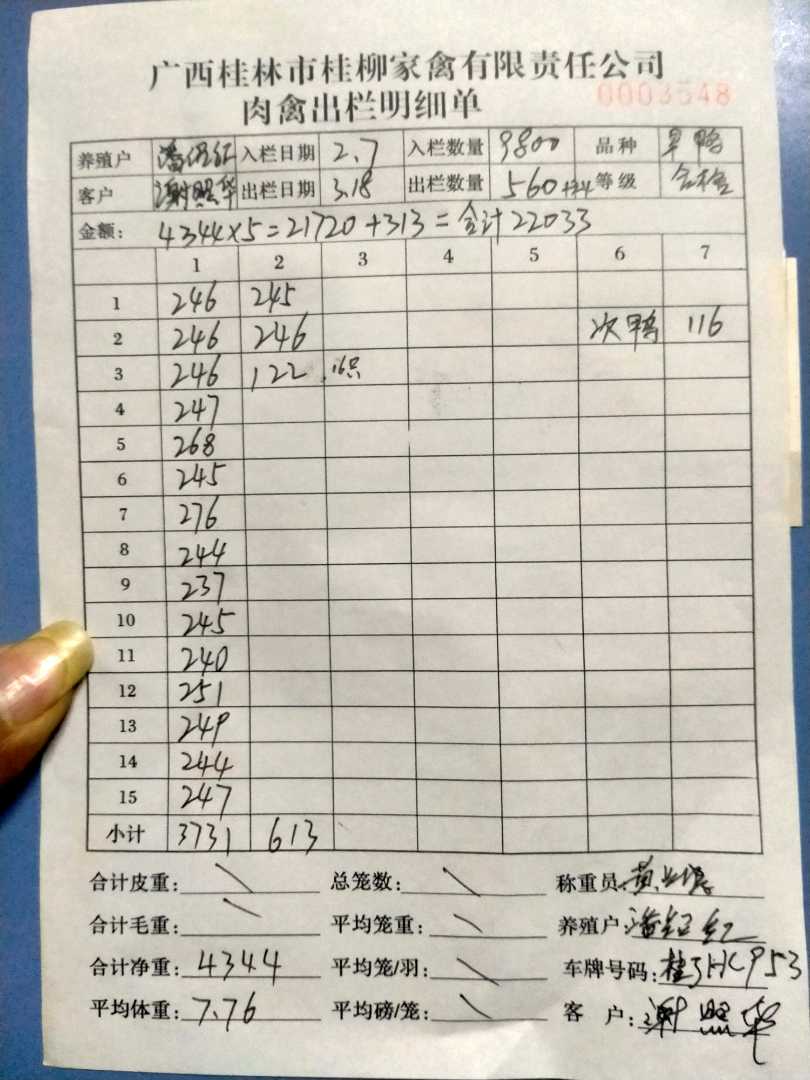 广西桂林市桂柳家禽有限责任公司
肉禽出栏明细单 0003548
养殖户 潘红 入栏日期 2.7 入栏数量 9800 品种 旱鸭
客户 谢照华 出栏日期 3.18 出栏数量 560 等级 合格
金额: 4344×5=21720+313=合计22033
1 2 3 4 5 6 7
1 246 245
2 246 246 次鸭 116
3 246 122 16只
4 247
5 268
6 245
7 276
8 244
9 237
10 245
11 240
12 251
13 249
14 244
15 247
小计 3731 613
合计皮重: 总笼数: 称重员: 黄
合计毛重: 平均笼重: 养殖户: 潘红
合计净重: 4344 平均笼/羽: 车牌号码: 桂JHC953
平均体重: 7.76 平均磅/笼: 客 户: 谢照华